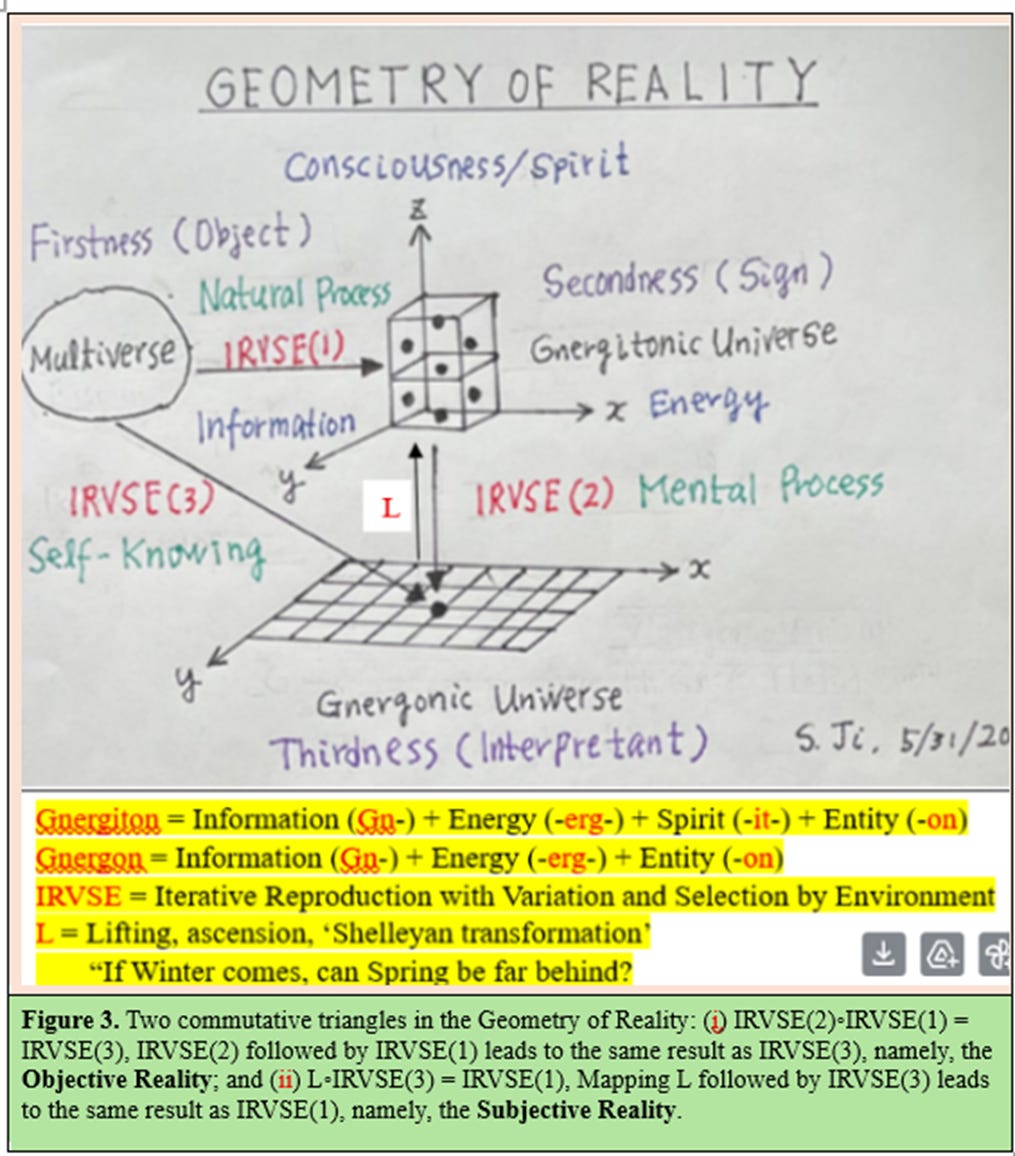 GEOMETRY OF REALITY
Consciousness/Spirit
z
Firstness (Object)
Natural Process
Secondness (Sign)
Multiverse
IRVSE(1)
Gnergitonic Universe
x Energy
Information
y
IRVSE(3)
L
IRVSE(2) Mental Process
Self-Knowing
x
y
Gnergonic Universe
Thirdness (Interpretant)
S. Ji, 5/31/20
Gnergiton = Information (Gn-) + Energy (-erg-) + Spirit (-it-) + Entity (-on)
Gnergon = Information (Gn-) + Energy (-erg-) + Entity (-on)
IRVSE = Iterative Reproduction with Variation and Selection by Environment
L = Lifting, ascension, ‘Shelleyan transformation’
“If Winter comes, can Spring be far behind?
Figure 3. Two commutative triangles in the Geometry of Reality: (i) IRVSE(2)◦IRVSE(1) =
IRVSE(3), IRVSE(2) followed by IRVSE(1) leads to the same result as IRVSE(3), namely, the
Objective Reality; and (ii) L◦IRVSE(3) = IRVSE(1), Mapping L followed by IRVSE(3) leads
to the same result as IRVSE(1), namely, the Subjective Reality.